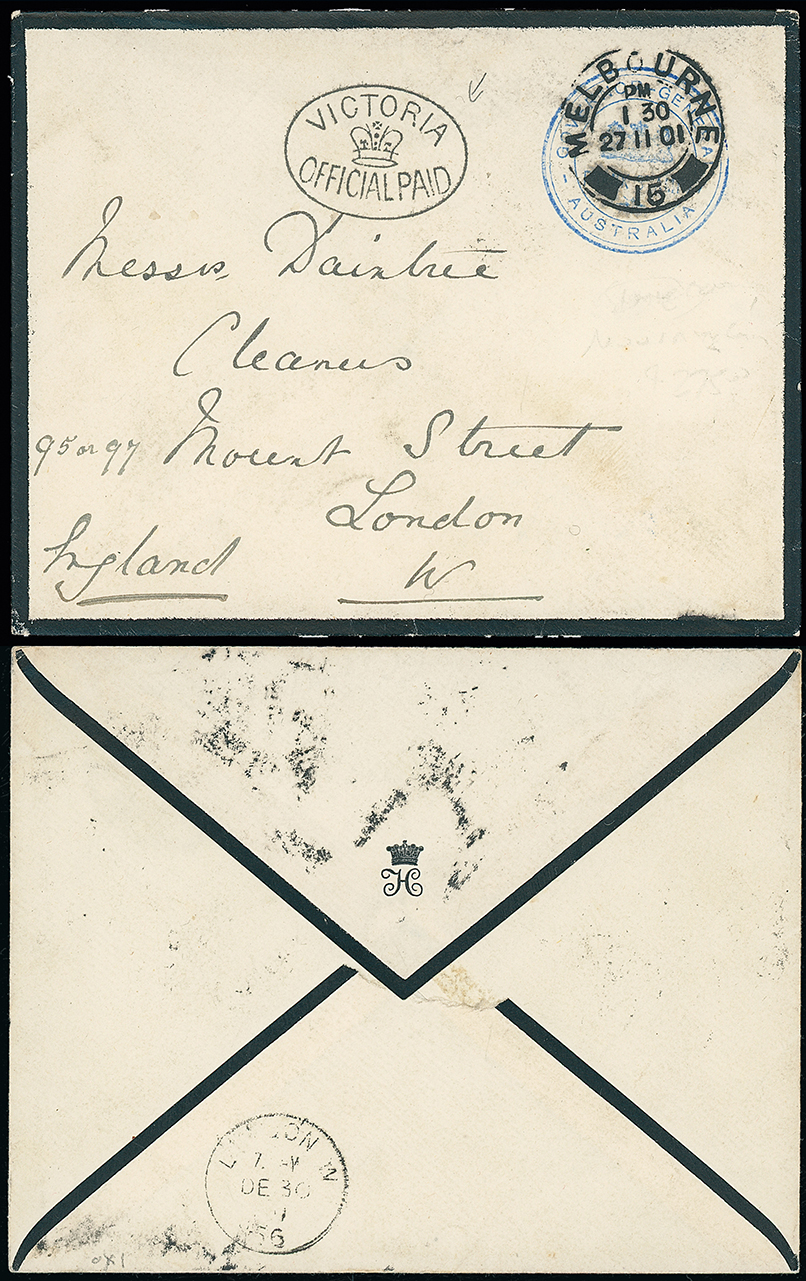 VICTORIA
OFFICIAL PAID
MELBOURNE
PM
1 30
27 11 01
15
AUSTRALIA
Messrs Daintree
Cleaners
95 or 97 Mount Street
London
England W
H
LONDON W
DE 30
56